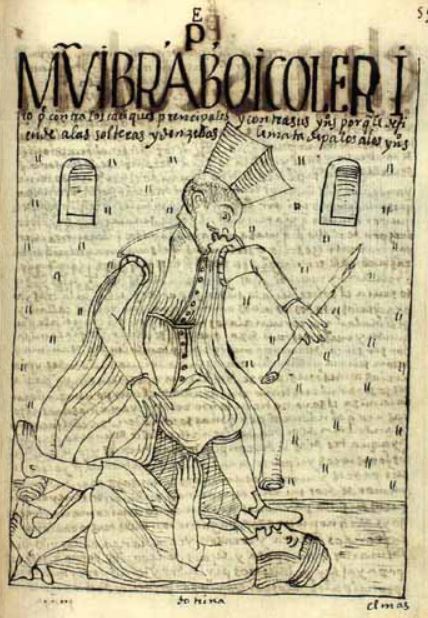 P E
MV̄I BRABO I COLERI
co p̄ contra los caciques prencipales y contra sus yn̄s por q̄ le defi
ende a las solteras y donzellas le mata de palos a los yn̄s
dotrina
el mas